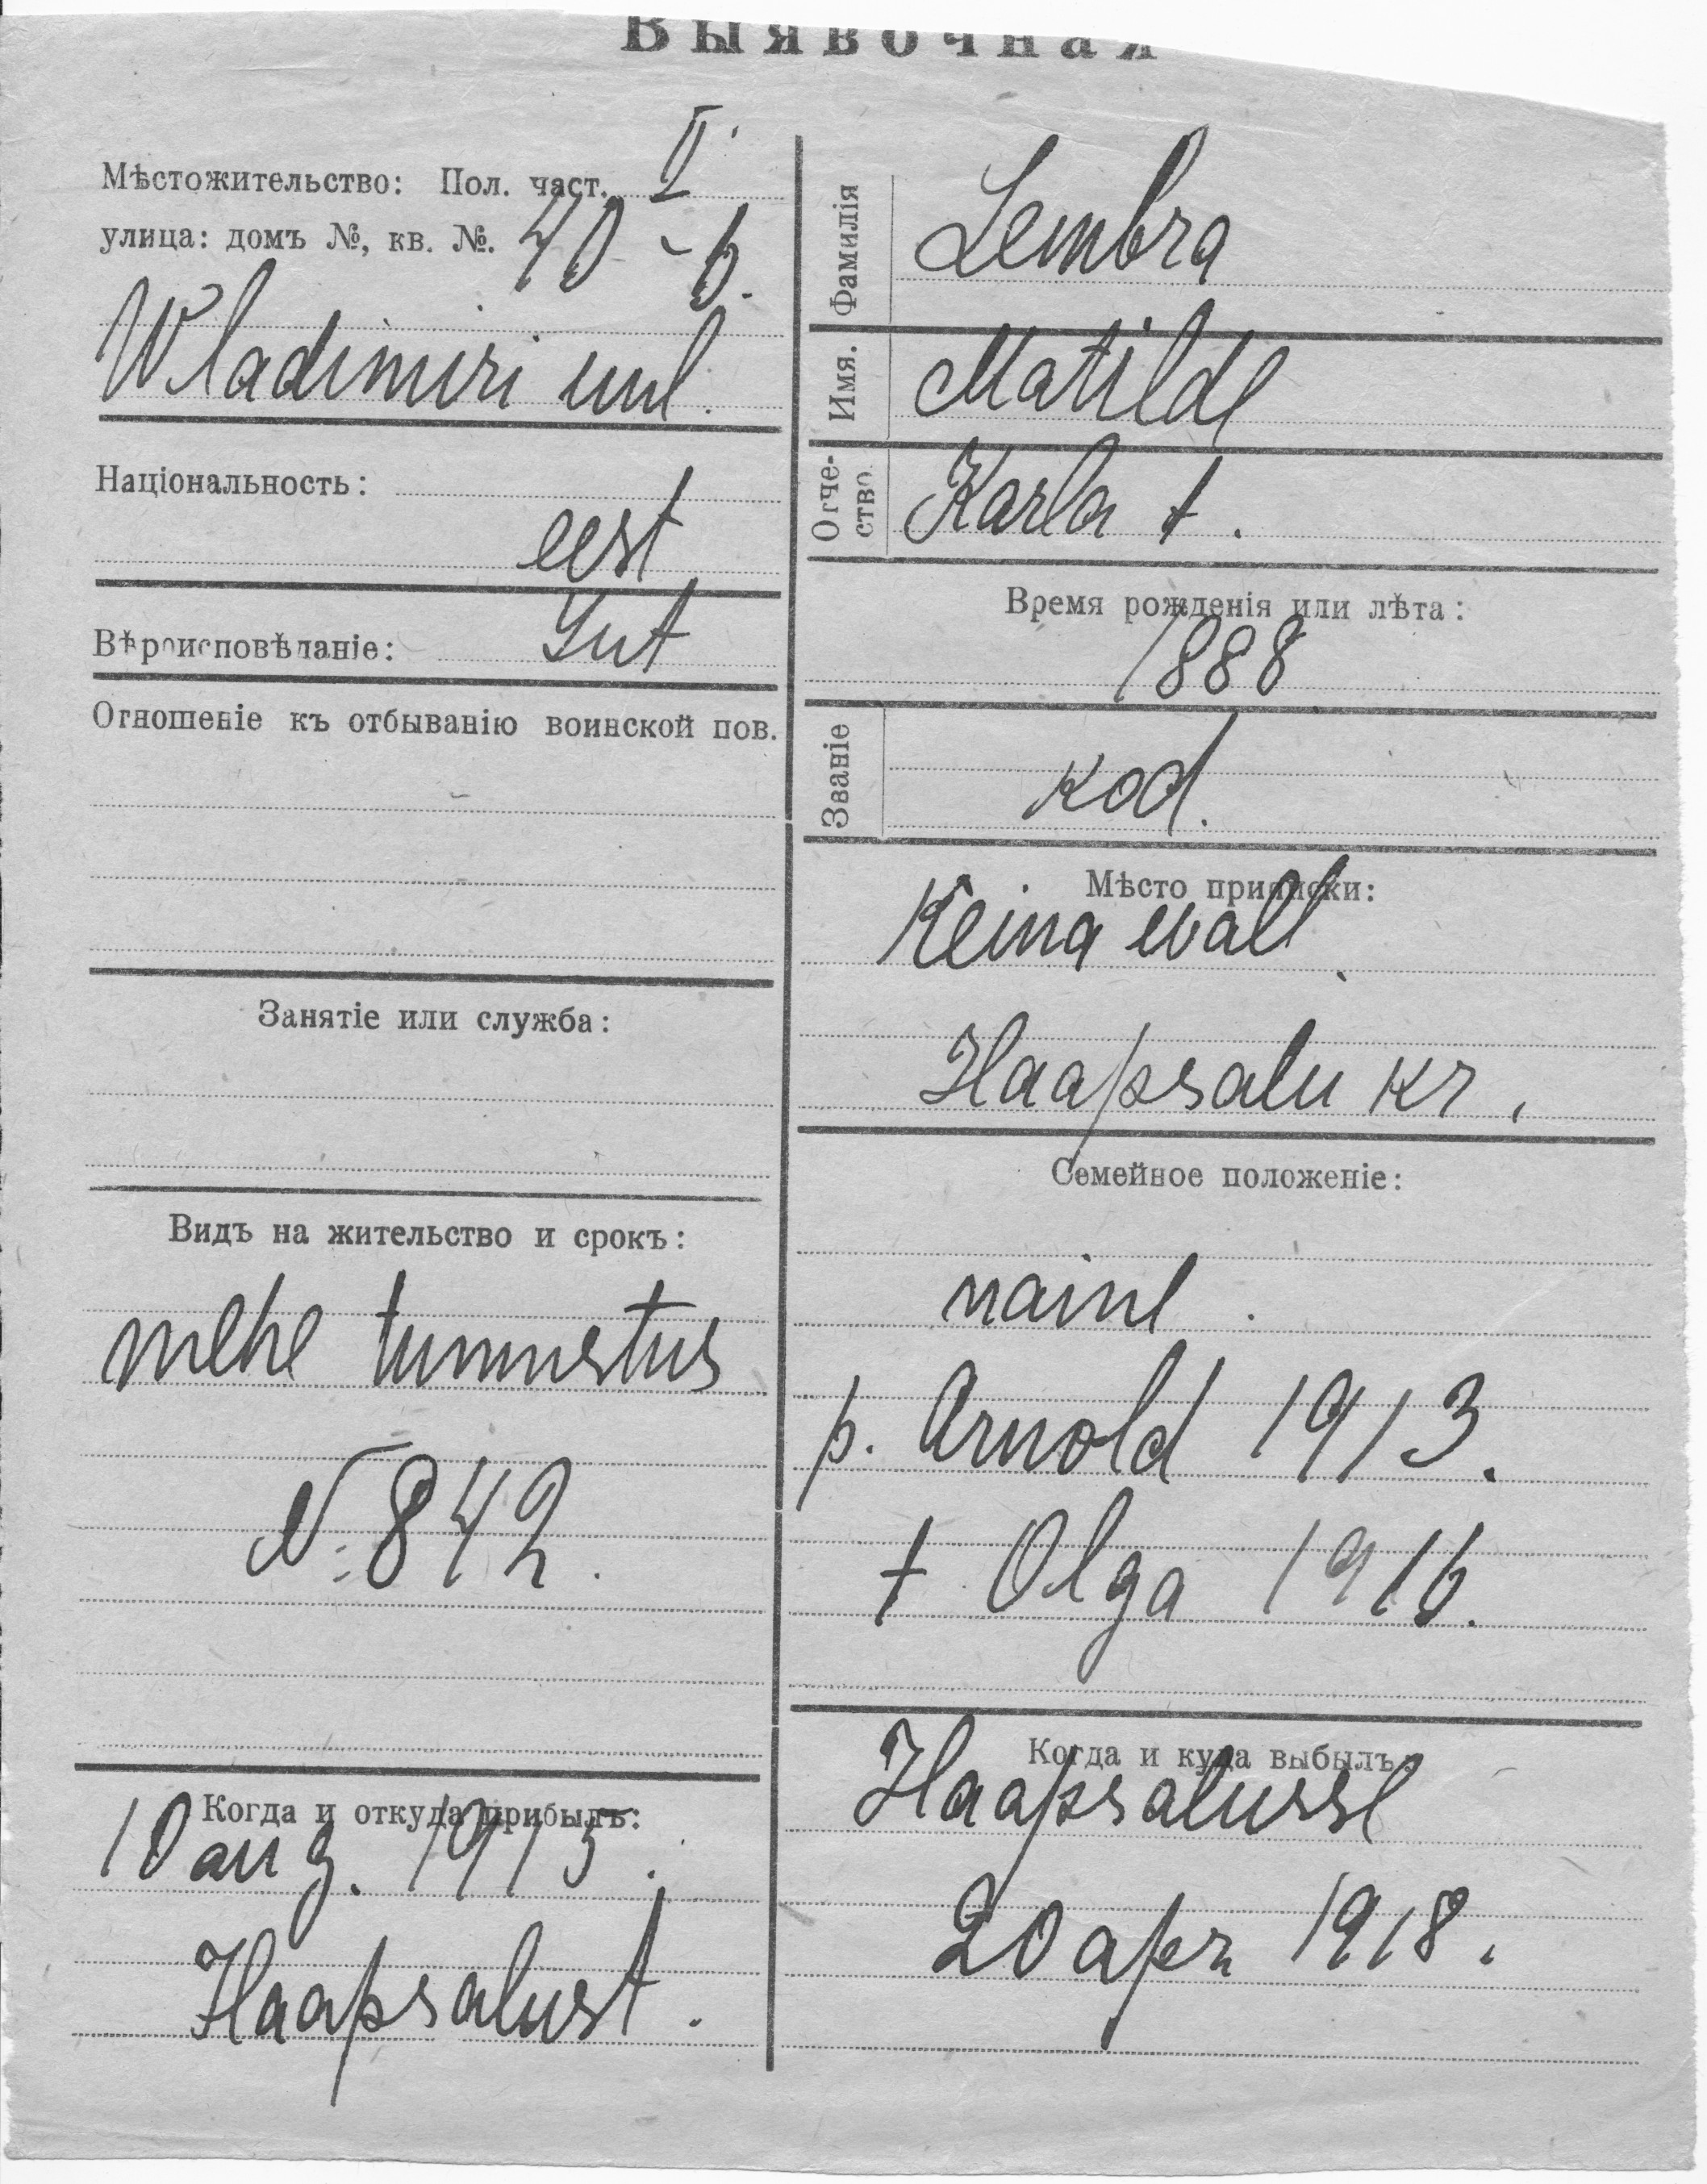 Выявочная
Мѣстожительство: Пол. част. I.
улица: домъ №, кв. №. 40 - 6.
Wladimiri uul.
Національность:
eest
Вѣроисповѣданіе: Lut
Отношеніе къ отбыванію воинской пов.
Занятіе или служба:
Видъ на жительство и срокъ:
mehe tunnustus
N: 842.
Когда и откуда прибылъ:
10 aug. 1915.
Haapsalust.
Фамилія Lembra
Имя. Matilde
Отче-
ство. Karla t.
Время рожденія или лѣта:
1888
Званіе kod.
Мѣсто приписки:
Keina wall.
Haapsalu kr.
Семейное положеніе:
naine.
p. Arnold 1913.
t Olga 1916.
Когда и куда выбылъ:
Haapsalusse
20 apr 1918.